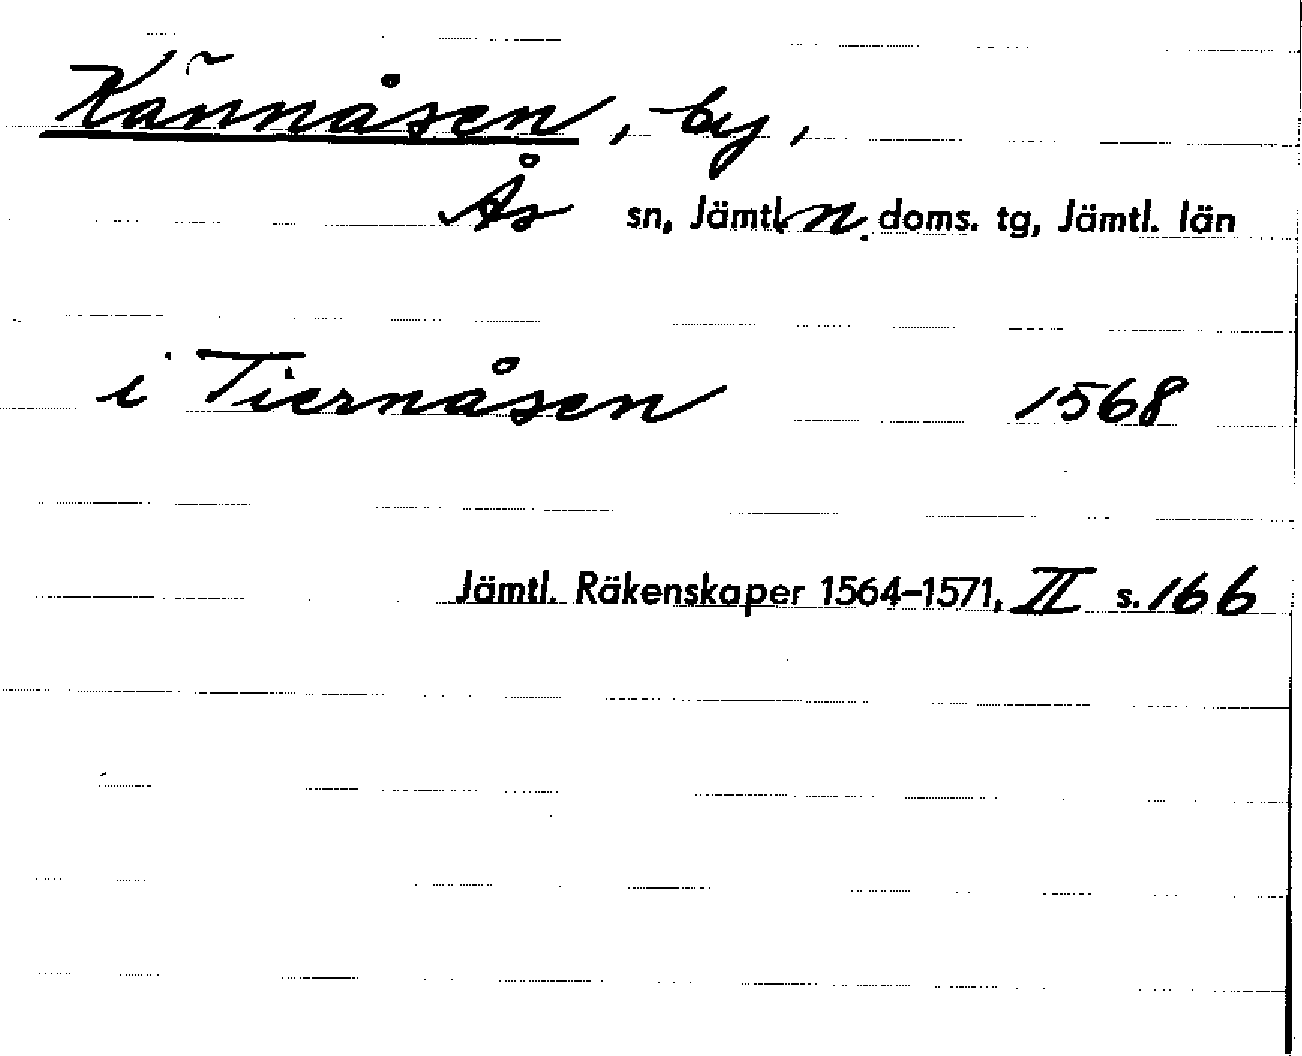 Kännåsen, by,
Ås sn, Jämtl. n. doms. tg, Jämtl. län
i Tiernåsen 1568
Jämtl. Räkenskaper 1564-1571, II s. 166